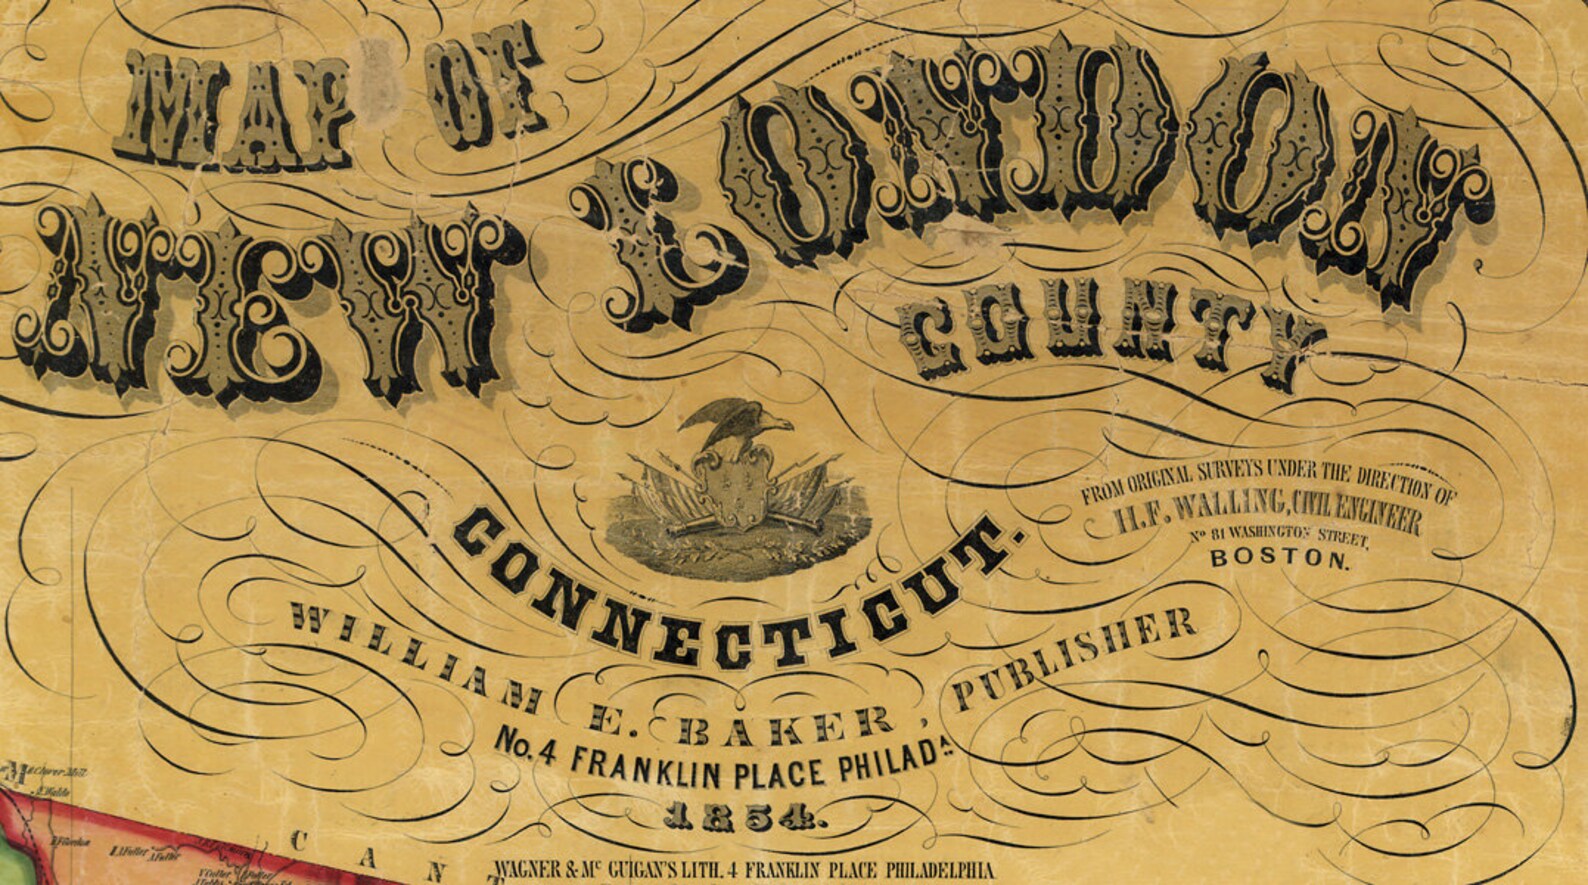 MAP OF
NEW LONDON,
COUNTY
CONNECTICUT.
FROM ORIGINAL SURVEYS UNDER THE DIRECTION OF
H.F. WALLING, CIVIL ENGINEER
No 81 WASHINGTON STREET,
BOSTON.
WILLIAM E. BAKER, PUBLISHER
No. 4 FRANKLIN PLACE PHILADA
1854.
WAGNER & Mc GUIGAN'S LITH. 4 FRANKLIN PLACE PHILADELPHIA
C A N T
A. Fuller